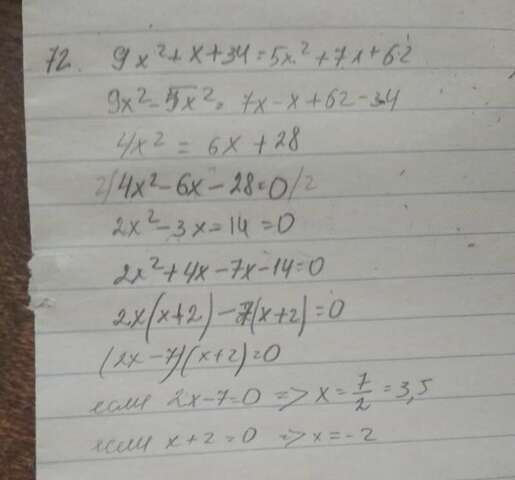 72. 9x² + x + 34 = 5x² + 7x + 62
9x² - 5x² = 7x - x + 62 - 34
4x² = 6x + 28
2/ 4x² - 6x - 28 = 0 /2
2x² - 3x = 14 = 0
2x² + 4x - 7x - 14 = 0
2x(x+2) - 7(x+2) = 0
(2x - 7)(x+2) = 0
если 2x - 7 = 0 => x = 7/2 = 3,5
если x + 2 = 0 => x = -2